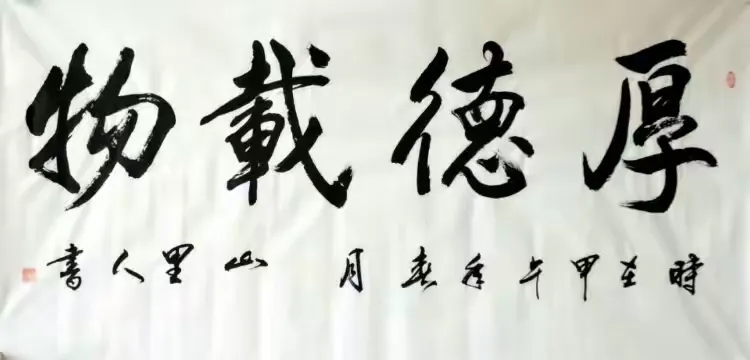 厚德載物
時在甲午年春月山里人書